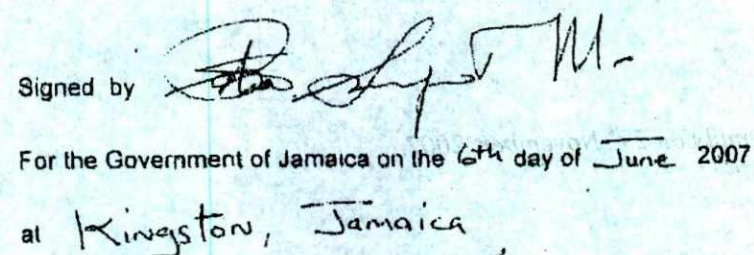 Signed by
For the Government of Jamaica on the 6th day of June 2007
at Kingston, Jamaica